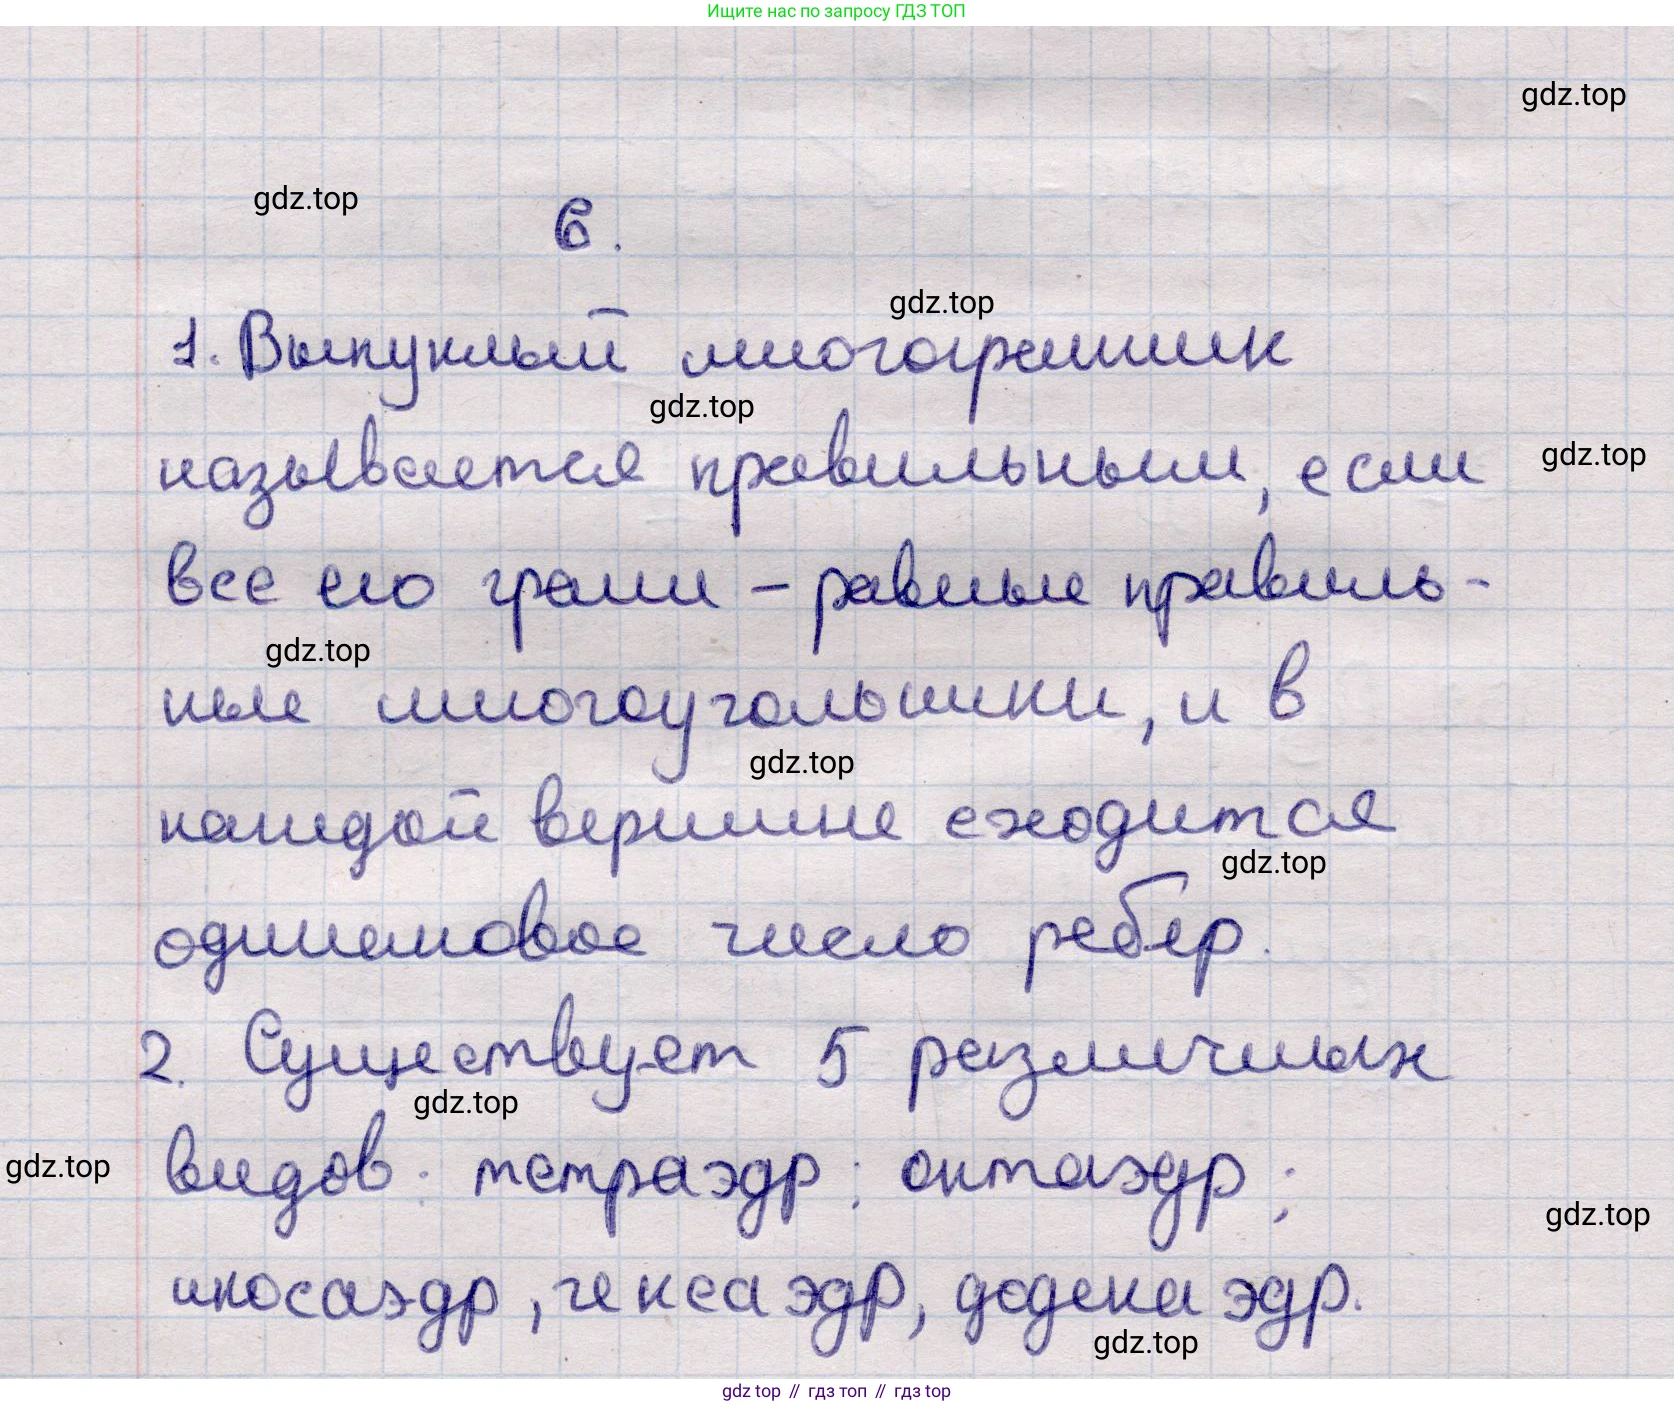 Ищите нас по запросу ГДЗ ТОП
gdz.top
gdz.top
6.
gdz.top
1. Выпуклый многогранник
gdz.top
называется правильным, если
gdz.top
все его грани – равные правиль-
gdz.top
ные многоугольники, и в
gdz.top
каждой вершине сходится
gdz.top
одинаковое число ребер.
2. Существует 5 различных
gdz.top
видов: тетраэдр; октаэдр;
gdz.top
gdz.top
икосаэдр, гексаэдр, додекаэдр.
gdz.top
gdz top // гдз топ // гдз top